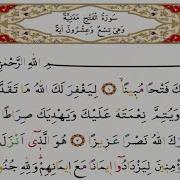 سُورَةُ الْفَتْحِ مَدَنِيَّةٌ
وَهِيَ تِسْعٌ وَعِشْرُونَ آيَةً
اللهِ الرَّحْمٰنِ
لَكَ فَتْحًا مُبِينًا ۙ لِيَغْفِرَ لَكَ اللهُ مَا تَقَدَّ
وَيُتِمَّ نِعْمَتَهُ عَلَيْكَ وَيَهْدِيَكَ صِرَاطًا
كَ اللهُ نَصْرًا عَزِيزًا هُوَ الَّذِي أَنْزَلَ
مِنِينَ لِيَزْدَادُوا إِيمَانًا مَعَ إِيمَانِهِمْ وَلِلّٰهِ جُنُو